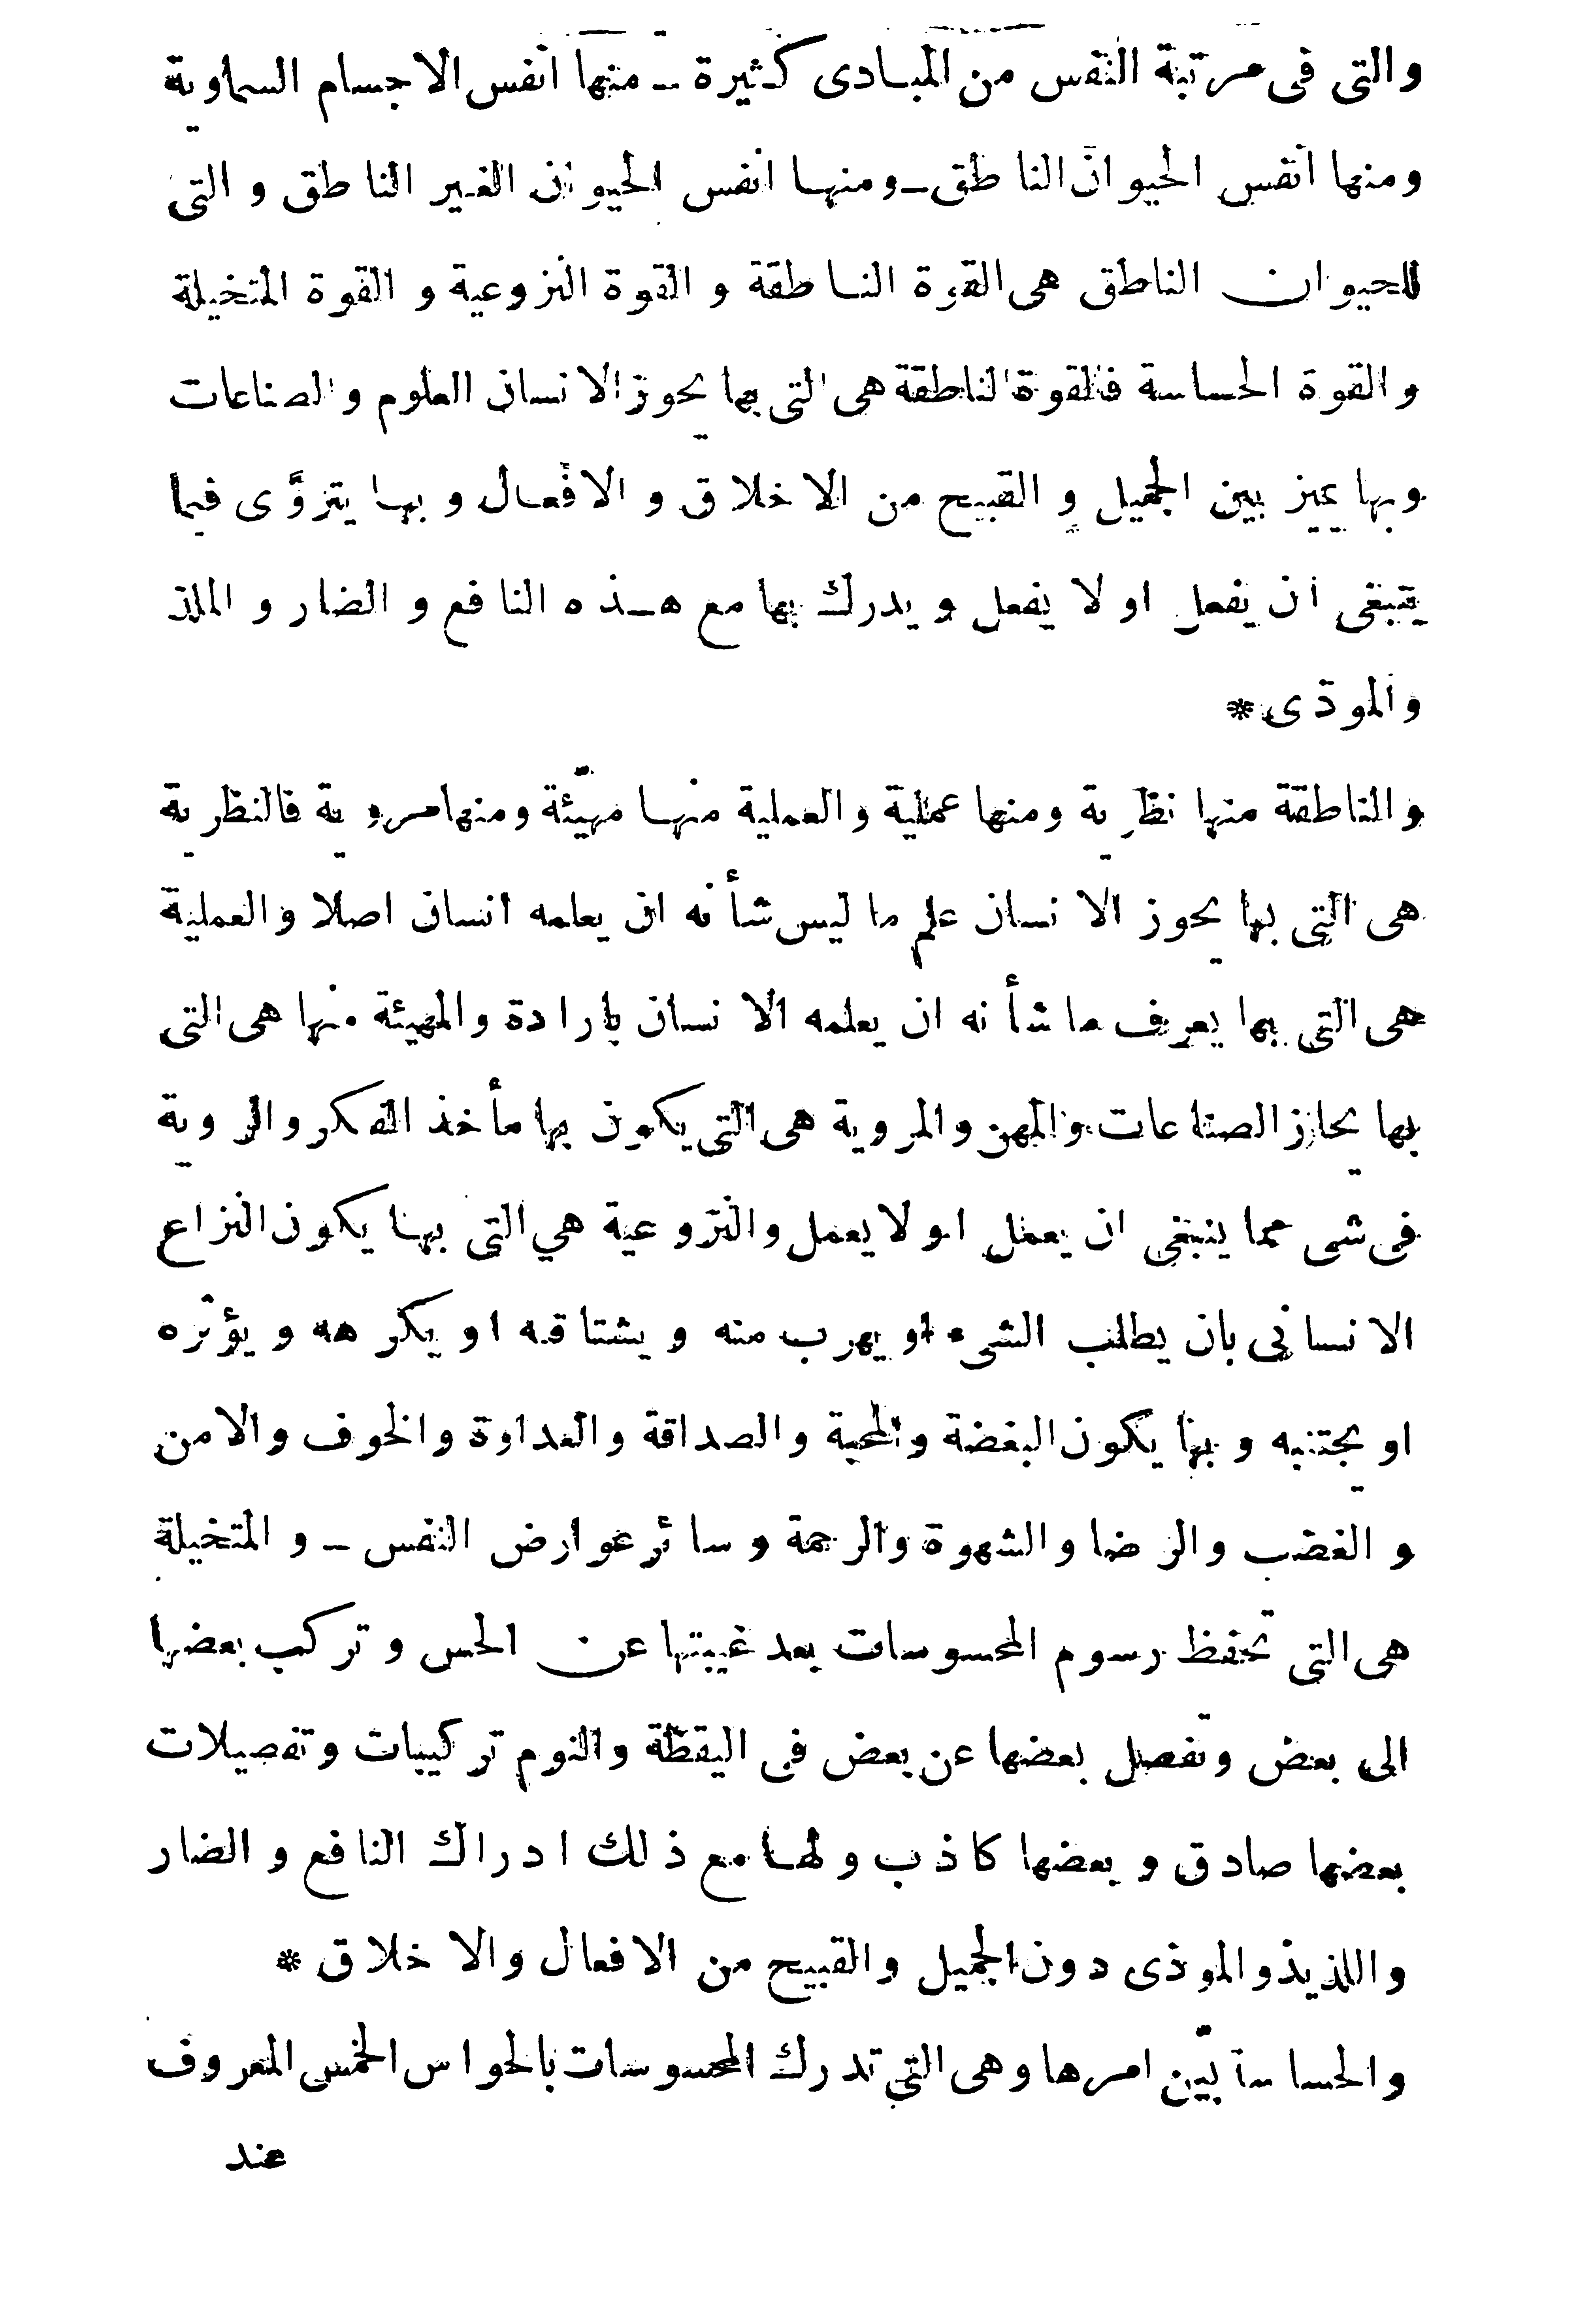 والتى فى مرتبة النفس من المبادى كثيرة ــ منها انفس الاجسام السماوية
ومنها انفس الحيوان الناطق ــ ومنها انفس الحيوان الغير الناطق و التى
للحيوان الناطق هى القوة الناطقة و القوة النزوعية و القوة المتخيلة
و القوة الحساسة فالقوة الناطقة هى التى بها يحوز الانسان العلوم و الصناعات
وبها يميز بين الجميل و القبيح من الاخلاق و الافعال و بها يتروَّى فيما
ينبغى ان يفعل او لا يفعل و يدرك بها مع هذه النافع و الضار و الملذ
والموذى *
والناطقة منها نظرية ومنها عملية والعملية منها مهيّئة ومنها مروية فالنظرية
هى التى بها يحوز الانسان علم ما ليس شأنه ان يعلمه انسان اصلا والعملية
هى التى بها يعرف ما شأنه ان يعلمه الانسان بارادة والمهيئة منها هى التى
بها يحاز الصناعات والمهن والمروية هى التى يكون بها مأخذ الفكر والروية
فى شى مما ينبغى ان يعمل او لا يعمل والنزوعية هي التى بها يكون النزاع
الانسانى بان يطلب الشىء او يهرب منه و يشتاقه او يكرهه و يؤثره
او يجتنبه و بها يكون البغضة والمحبة والصداقة والعداوة والخوف والامن
و الغضب والرضا والشهوة والرحمة و سائر عوارض النفس ــ و المتخيلة
هى التى تحفظ رسوم المحسوسات بعد غيبتها عن الحس و تركب بعضها
الى بعض وتفصل بعضها عن بعض فى اليقظة والنوم تركيبات وتفصيلات
بعضها صادق و بعضها كاذب و لها مع ذلك ادراك النافع و الضار
واللذيذ والموذى دون الجميل والقبيح من الافعال والاخلاق *
والحساسة بيّن امرها وهى التي تدرك المحسوسات بالحواس الخمس المعروف
عند